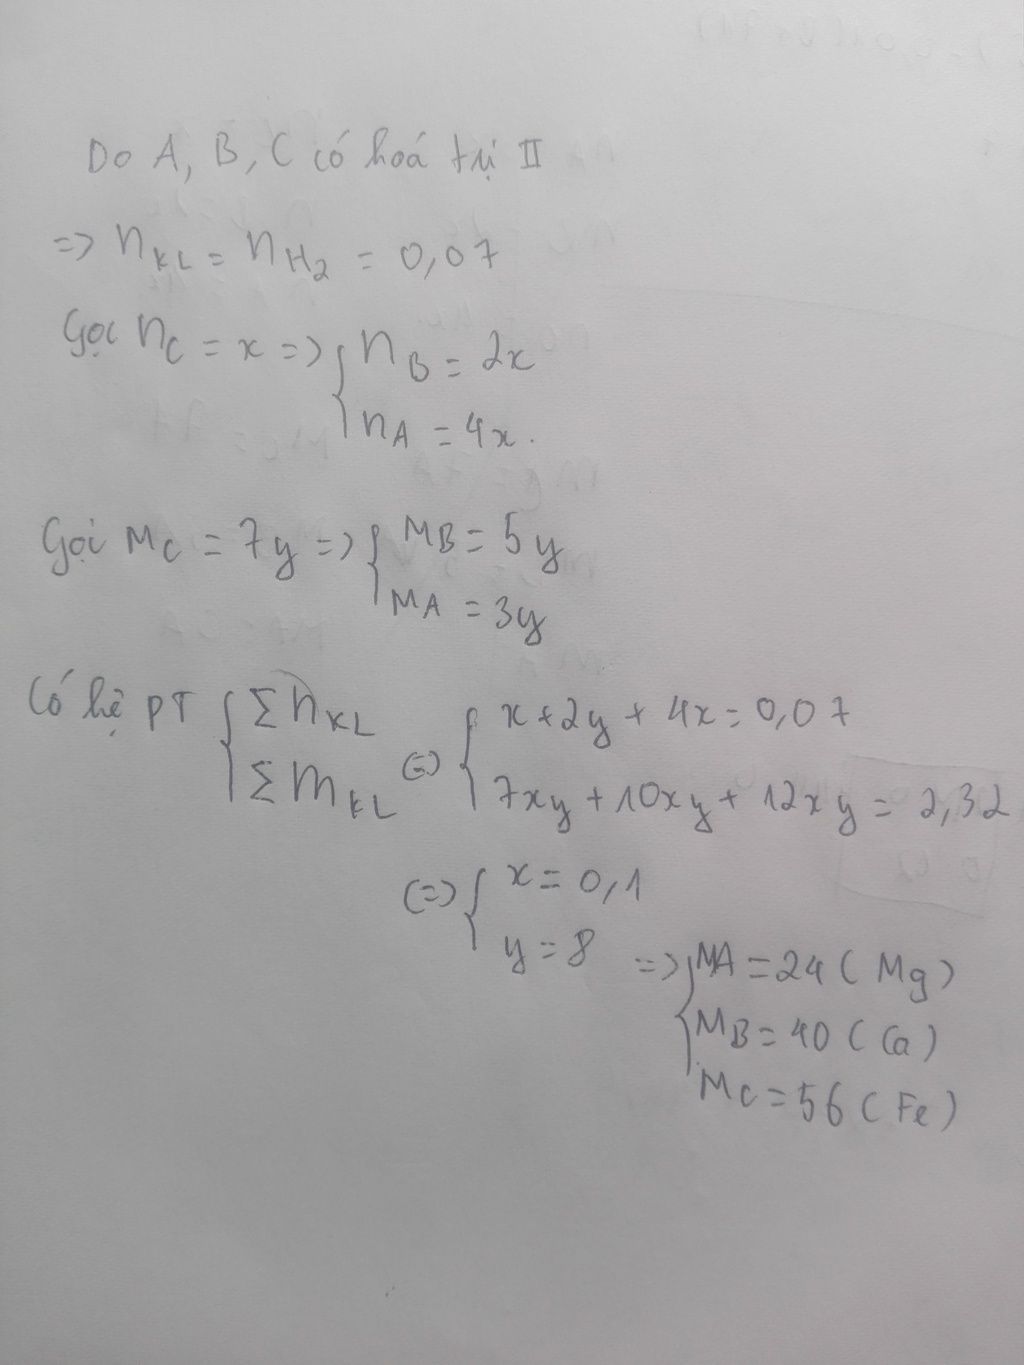 Do A, B, C có hoá trị II
=> nKL = nH2 = 0,07
Gọi nC = x => { nB = 2x
nA = 4x.
Gọi MC = 7y => { MB = 5y
MA = 3y
Có hệ PT { Σ nKL <=> { x + 2y + 4x = 0,07
Σ mKL 7xy + 10xy + 12xy = 2,32
(=>) { x = 0,1
y = 8 => { MA = 24 (Mg)
MB = 40 (Ca)
MC = 56 (Fe)